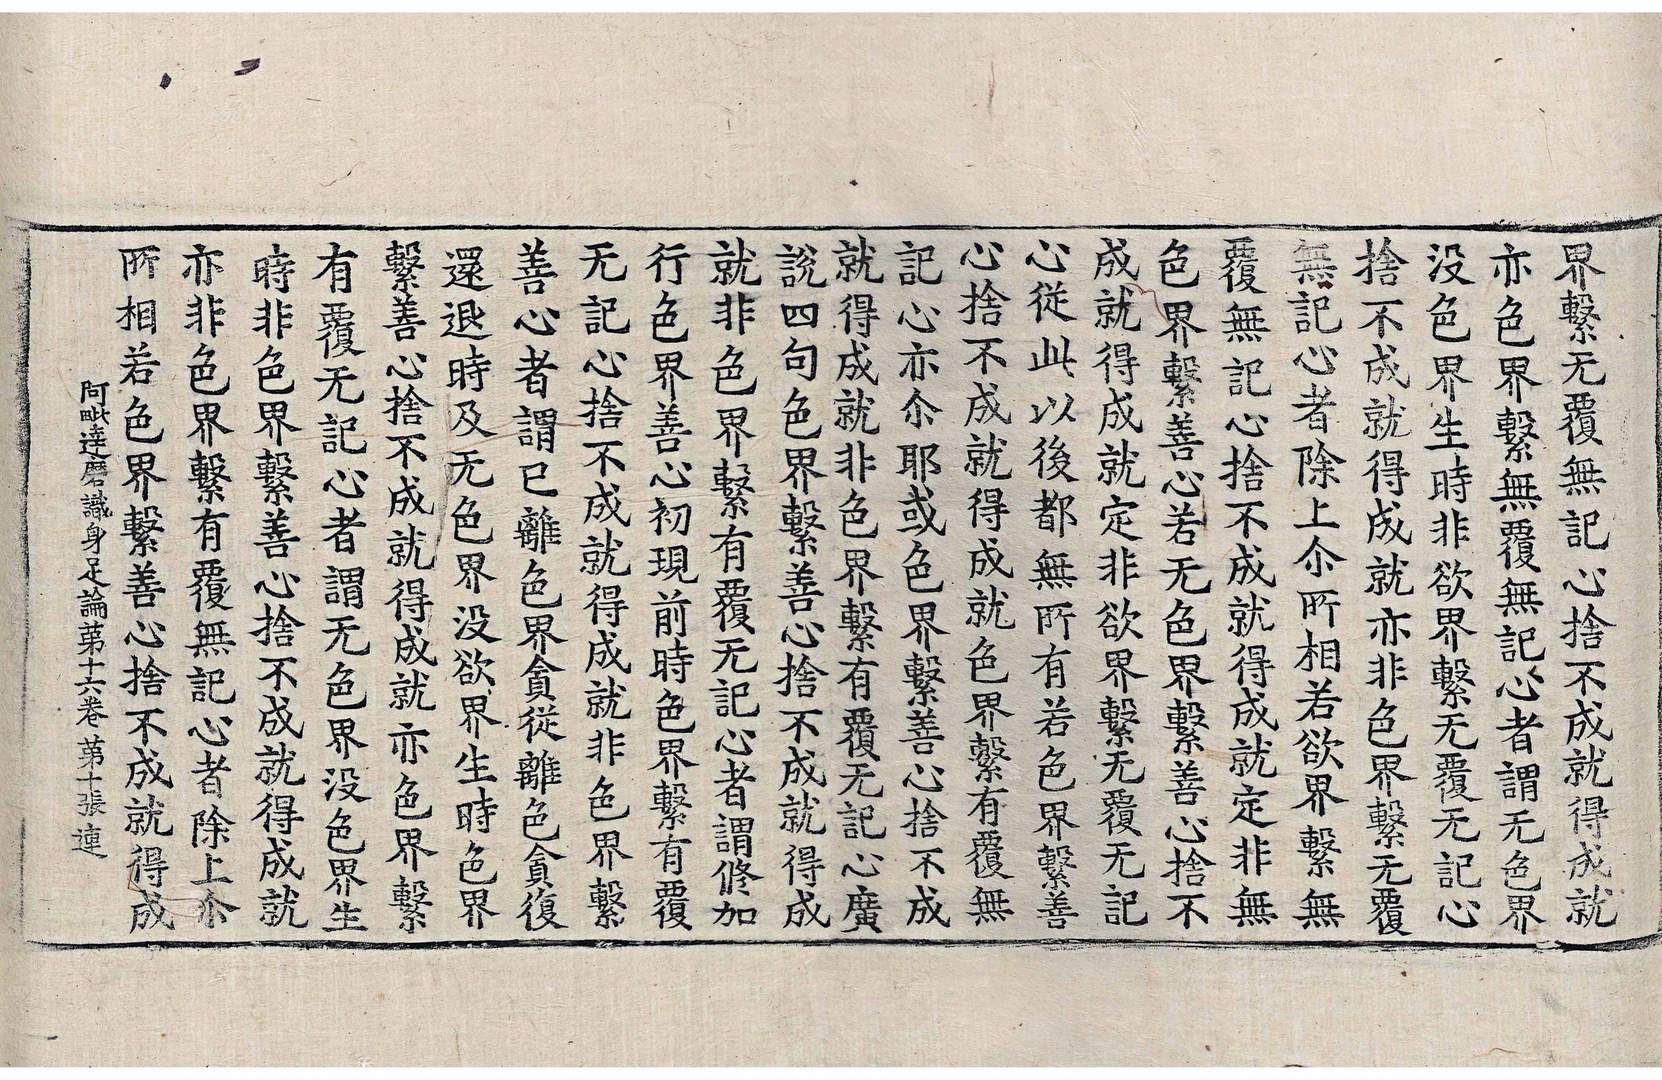 界繫无覆無記心捨不成就得成就
亦色界繫無覆無記心者謂无色界
没色界生時非欲界繫无覆无記心
捨不成就得成就亦非色界繫无覆
無記心者除上尒所相若欲界繫無
覆無記心捨不成就得成就定非無
色界繫善心若无色界繫善心捨不
成就得成就定非欲界繫无覆无記
心從此以後都無所有若色界繫善
心捨不成就得成就色界繫有覆無
記心亦尒耶或色界繫善心捨不成
就得成就非色界繫有覆无記心廣
說四句色界繫善心捨不成就得成
就非色界繫有覆无記心者謂俢加
行色界善心初現前時色界繫有覆
无記心捨不成就得成就非色界繫
善心者謂已離色界貪從離色貪復
還退時及无色界没欲界生時色界
繫善心捨不成就得成就亦色界繫
有覆无記心者謂无色界没色界生
時非色界繫善心捨不成就得成就
亦非色界繫有覆無記心者除上尒
所相若色界繫善心捨不成就得成
阿毗達磨識身足論苐十六卷 苐十張 連